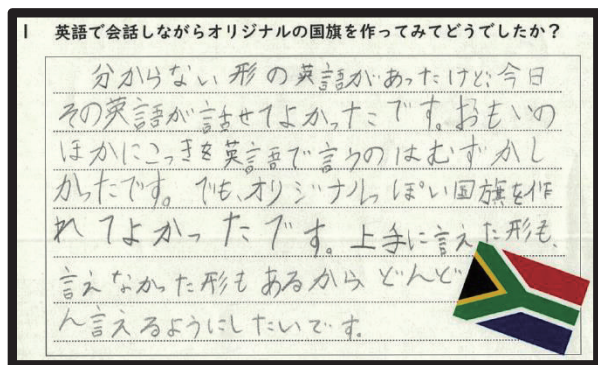 1 英語で会話しながらオリジナルの国旗を作ってみてどうでしたか？
分からない形の英語があったけど、今日
その英語が話せてよかったです。おもいの
ほかにこっきを英語で言うのはむずかし
かったです。でも、オリジナルっぽい国旗を作
れてよかったです。上手に言えた形も、
言えなかった形もあるから、どんど
ん言えるようにしたいです。